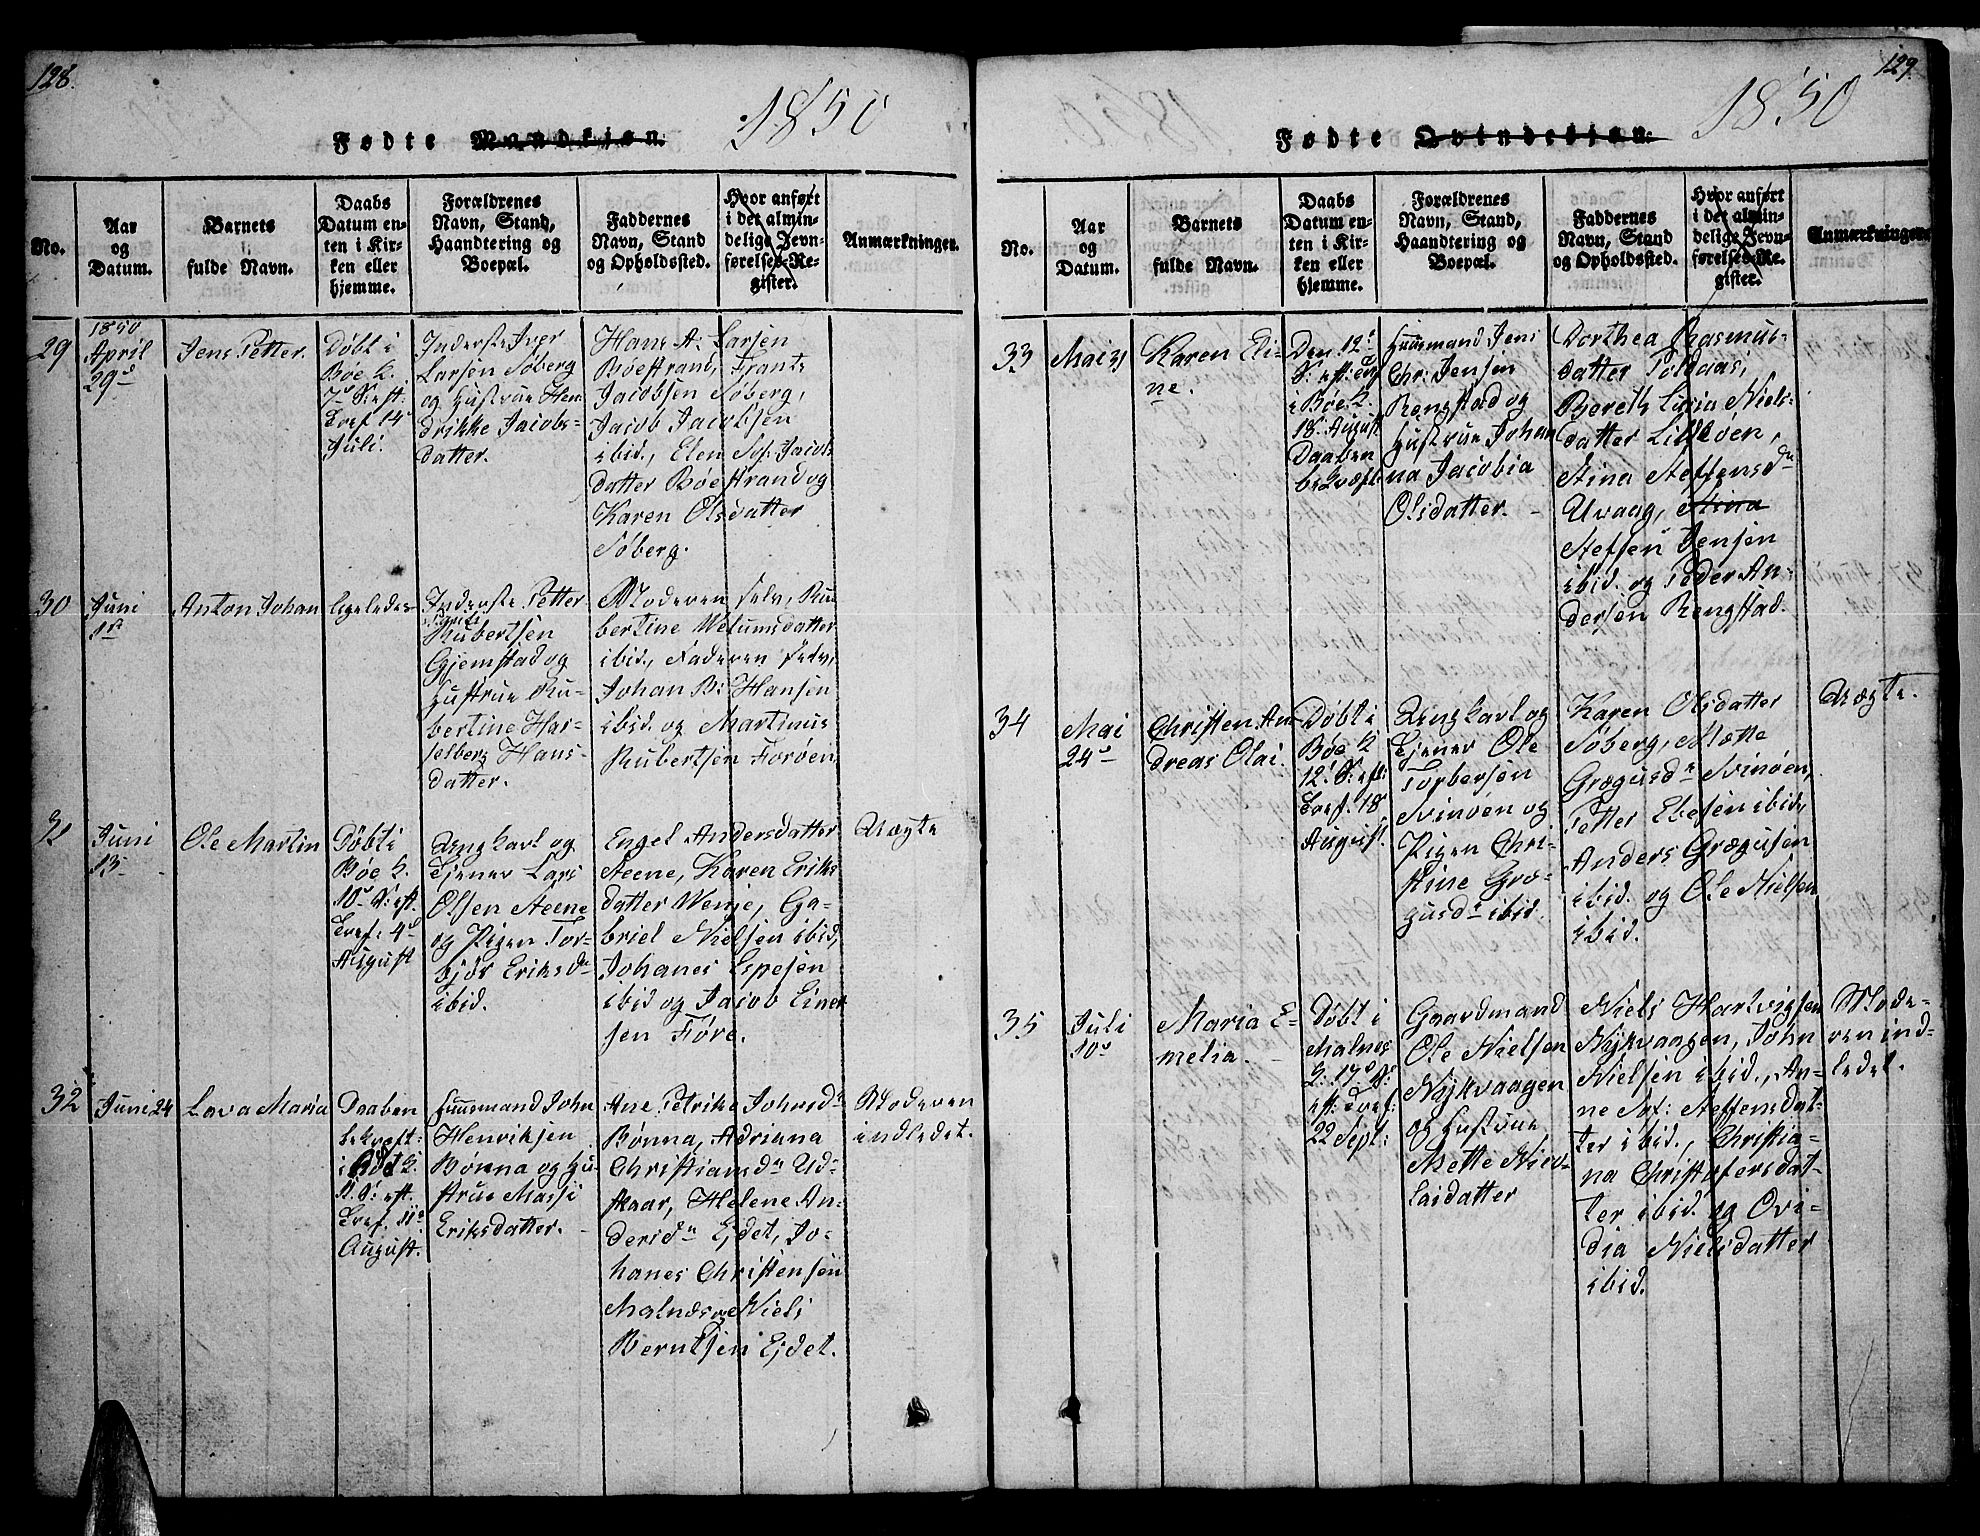 128.
1850
Fødte Mandkjøn.
No.
Aar
og
Datum.
Barnets
fulde Navn.
Daabs
Datum en-
ten i Kir-
ken eller
hjemme.
Forældrenes
Navn, Stand,
Haandtering og
Boepæl.
Faddernes
Navn, Stand
og Opholdssted.
Hvor anført
i det almin-
delige Jevn-
førelses-Re-
gister.
Anmærkninger.
29
1850
April
29d
Jens Petter.
Døbt i
Boe K.
7d S: eft:
Tref 14d
Juli.
Inderste Iver
Larsen Søberg
og Hustrue Hen-
drikke Jacobs-
datter.
Hans A: Larsen
Bøestrand, Frants
Jacobsen Søberg,
Jacob Jacobsen
ibid., Elen Sof: Jacobs
datter Bøestrand og
Karen Olsdatter
Søberg.
30
Juni
1st
Anton Johan
ligeledes
Inderste Petter
Rubertsen
Gjemstad og
Hustrue Ru-
bertine Has-
selberg Hans-
datter.
Moderen selv, Ru
bertine Welumsdatter
ibid., Faderen selv,
Johan B: Hansen
ibid. og Martinus
Rubertsen Forøen
31
Juni
13
Ole Martin
Døbt i
Bøe K.
10d S: eft.
Tref: 4d
August
Ungkarl og
Tjener Lars
Olsen Steene
og Pigen Tor-
bjør Eriksdr
ibid.
Engel Andersdatter
Steene, Karen Eriks
datter Wenje, Ga-
briel Nielsen ibid,
Johanes Espesen
ibid og Jacob Einer
sen Føre.
Uægte
32
Juni 24
Lava Maria
Daaben
bekræft:
i Bøe K.
11. S: eft.
Tref. 11d
August.
Huusmand John
Henriksen
Bønna og Hu-
strue Massi
Eriksdatter.
Ane Petrike Johnsdr
Bønna, Adriana
Christiansdr Ud-
skaar, Helene An-
dersdr Ejdet, Jo-
hanes Christensen
Malnæs og Niels
Berntsen Ejdet.
Moderen
indledet.
129.
1850
Fødte Qvindekjøn.
No.
Aar
og
Datum.
Barnets
fulde Navn.
Daabs
Datum en-
ten i Kir-
ken eller
hjemme.
Forældrenes
Navn, Stand,
Haandtering og
Boepæl.
Faddernes
Navn, Stand
og Opholdssted.
Hvor anført
i det almin-
delige Jevn-
førelses-Re-
gister.
Anmærkninger.
33
Mai 31
Karen Eli-
ne.
Den 12d
S: eft: Tref
i Bøe K.
18. August
Daaben
bekræft.
Huusmand Jens
Chr: Jensen
Rengstad og
Hustrue Johan
na Jacobia
Olsdatter.
Dorthea Rasmus-
datter Poldaas,
Bereth Lucia Niels-
datter Lilleven,
Stina Steffensdr
Uvaag, Stina
Steffen Jensen
ibid. og Peder An-
dersen Rengstad.
34
Mai
24d
Christen An-
dreas Olai.
Døbt i
Bøe K
12. S: eft:
Tref. 18d
August.
Ungkarl og
Tjener Ole
Torbersen
Svinøen og
Pigen Chri-
stine Græ-
gusdr ibid.
Karen Olsdatter
Søberg, Mætte
Grægusdr Svinøen,
Petter Ebesen ibid,
Anders Grægusen
ibid. og Ole Nielsen
ibid.
Uægte.
35
Juli
10d
Maria E-
melia.
Døbt i
Malnes
K: 17d S:
eft: Tref:
22 Sept:
Gaardmand
Ole Nielsen
Nykvaagen
og Hustrue
Mette Nico-
laidatter
Niels Hartvigsen
Nykvaagen, John
Nielsen ibid., An-
ne Sof: Steffensdat-
ter ibid., Christia-
na Christofersdat-
ter ibid. og Ovi-
dia Nielsdatter
ibid.
Mode-
ren ind-
ledet.